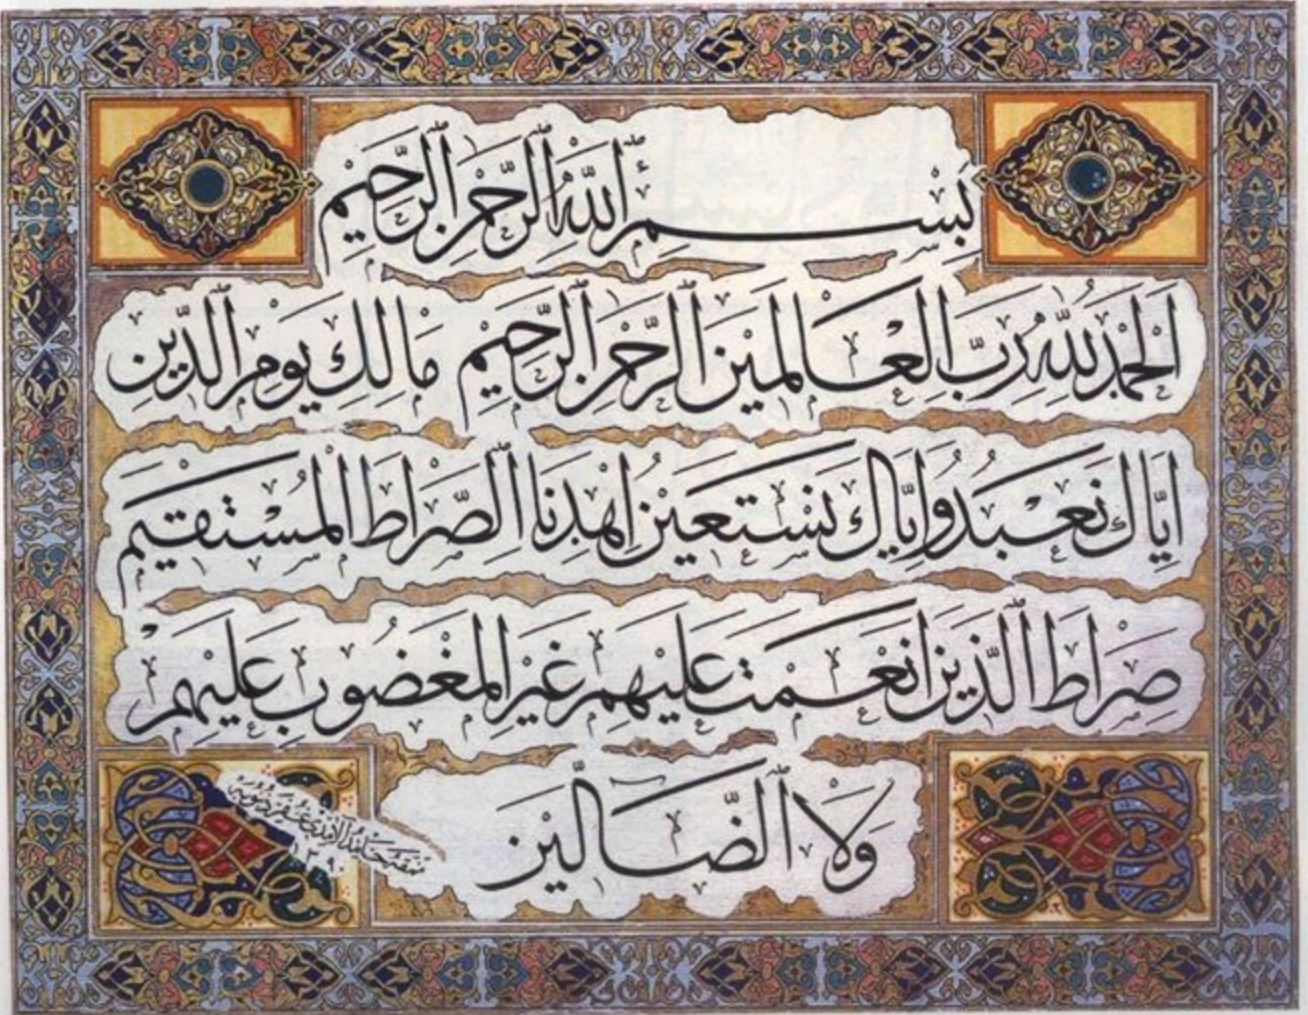 بِسْمِ ٱللّٰهِ ٱلرَّحْمٰنِ ٱلرَّحِيْمِ
اَلْحَمْدُ لِلّٰهِ رَبِّ الْعَالَمِيْنَ ٱلرَّحْمٰنِ ٱلرَّحِيْمِ مَالِكِ يَوْمِ ٱلدِّيْنِ
اِيَّاكَ نَعْبُدُ وَاِيَّاكَ نَسْتَعِيْنُ اِهْدِنَا ٱلصِّرَاطَ الْمُسْتَقِيْمَ
صِرَاطَ ٱلَّذِيْنَ اَنْعَمْتَ عَلَيْهِمْ غَيْرِ الْمَغْضُوبِ عَلَيْهِمْ
وَلَا ٱلضَّاۤلِّيْنَ
حامد الآمدي
١٣٩٠